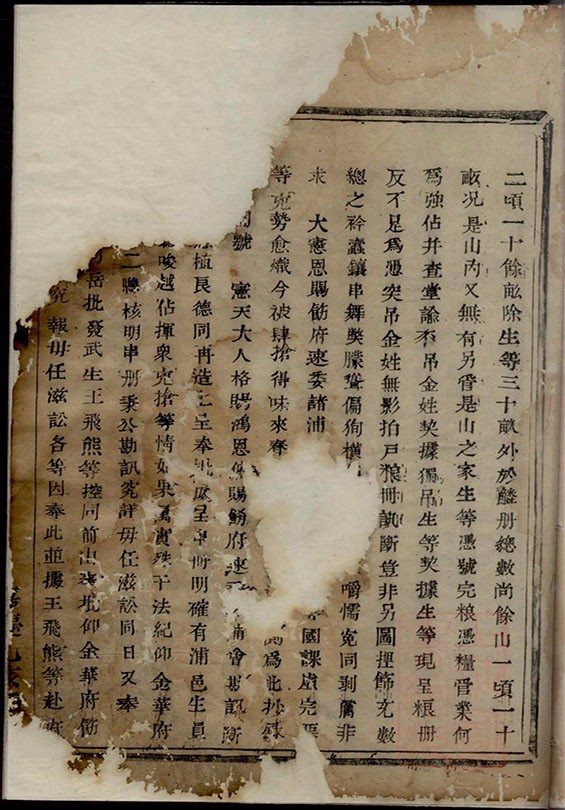 二頃一十餘畝除生等三十畝外於鱗册總數尚餘山一頃一十
畝况是山內又無有另管是山之家生等憑號完粮憑糧管業何
為強佔并查堂諭不吊金姓契據獨吊生等契據生等現呈粮册
反不足為憑突吊金姓無影拍戶粮冊執斷豈非另圖捏飾充數
總之衿蠹鑲串舞獘朦聳偏狥橫 嚼懦寃同剥膚非
求 大憲恩賜飭府速委諸浦 國課虛完
等兇勢愈熾今被肆搶得味來 為此抄錄
號 憲天大人格賜鴻恩 賜飭府速 浦會勘訊斷
植良德同再造上呈奉 呈串冊明確有浦邑生員
唆越佔揮衆兇搶等情如果屬實殊干法紀仰金華府
二縣核明串册秉公勘訊究詳毋任滋訟同日又奉
岳批發武生王飛熊等控同前由 批仰金華府飭
究報毋任滋訟各等因奉此並據王飛熊等赴府